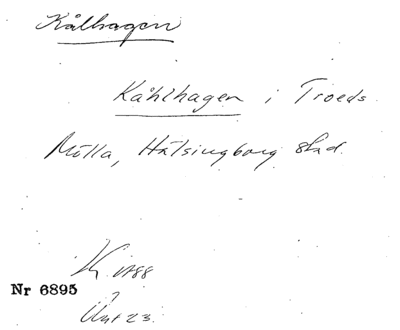 Kålhagen
Kåhlhagen i Troeds
Mölla, Hälsingborg stad.
Nr 6895